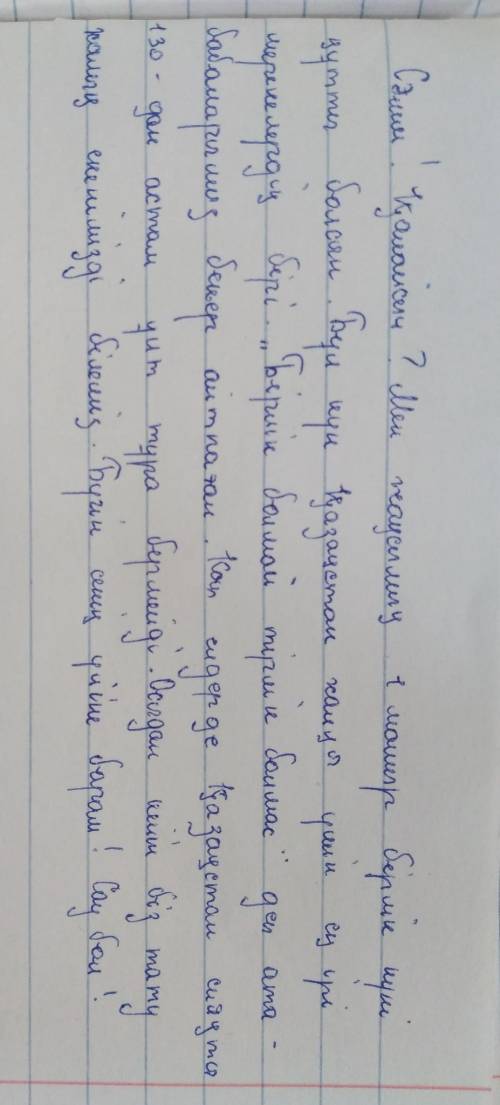 Сәлем! Қалайсың? Мен жақсымын. 1 мамыр бірлік күні
құтты болсын. Бұл күн Қазақстан халқы үшін ең ірі
мерекелердің бірі. „Бірлік болмай тірлік болмас" деп ата-
бабаларымыз бекер айтпаған. Көп елдерде Қазақстан сияқты
130-дан астам ұлт тұра бермейді. Осыдан кейін біз тату
халық екенімізді білеміз. Бүгін сенің үйіңе барам! Сау бол!